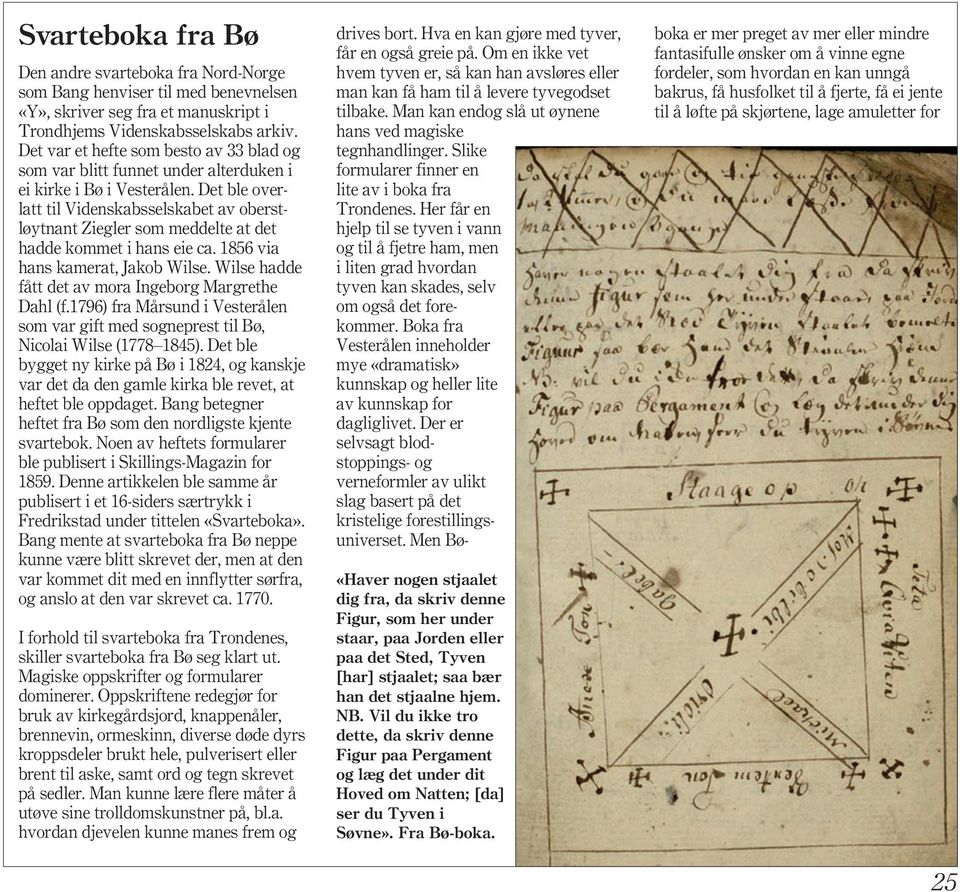 Svarteboka fra Bø
Den andre svarteboka fra Nord-Norge
som Bang henviser til med benevnelsen
«Y», skriver seg fra et manuskript i
Trondhjems Videnskabsselskabs arkiv.
Det var et hefte som besto av 33 blad og
som var blitt funnet under alterduken i
ei kirke i Bø i Vesterålen. Det ble over-
latt til Videnskabsselskabet av oberst-
løytnant Ziegler som meddelte at det
hadde kommet i hans eie ca. 1856 via
hans kamerat, Jakob Wilse. Wilse hadde
fått det av mora Ingeborg Margrethe
Dahl (f.1796) fra Mårsund i Vesterålen
som var gift med sogneprest til Bø,
Nicolai Wilse (1778–1845). Det ble
bygget ny kirke på Bø i 1824, og kanskje
var det da den gamle kirka ble revet, at
heftet ble oppdaget. Bang betegner
heftet fra Bø som den nordligste kjente
svartebok. Noen av heftets formularer
ble publisert i Skillings-Magazin for
1859. Denne artikkelen ble samme år
publisert i et 16-siders særtrykk i
Fredrikstad under tittelen «Svarteboka».
Bang mente at svarteboka fra Bø neppe
kunne være blitt skrevet der, men at den
var kommet dit med en innflytter sørfra,
og anslo at den var skrevet ca. 1770.
I forhold til svarteboka fra Trondenes,
skiller svarteboka fra Bø seg klart ut.
Magiske oppskrifter og formularer
dominerer. Oppskriftene redegjør for
bruk av kirkegårdsjord, knappenåler,
brennevin, ormeskinn, diverse døde dyrs
kroppsdeler brukt hele, pulverisert eller
brent til aske, samt ord og tegn skrevet
på sedler. Man kunne lære flere måter å
utøve sine trolldomskunstner på, bl.a.
hvordan djevelen kunne manes frem og
drives bort. Hva en kan gjøre med tyver,
får en også greie på. Om en ikke vet
hvem tyven er, så kan han avsløres eller
man kan få ham til å levere tyvegodset
tilbake. Man kan endog slå ut øynene
hans ved magiske
tegnhandlinger. Slike
formularer finner en
lite av i boka fra
Trondenes. Her får en
hjelp til se tyven i vann
og til å fjetre ham, men
i liten grad hvordan
tyven kan skades, selv
om også det fore-
kommer. Boka fra
Vesterålen inneholder
mye «dramatisk»
kunnskap og heller lite
av kunnskap for
dagliglivet. Der er
selvsagt blod-
stoppings- og
verneformler av ulikt
slag basert på det
kristelige forestillings-
universet. Men Bø-
boka er mer preget av mer eller mindre
fantasifulle ønsker om å vinne egne
fordeler, som hvordan en kan unngå
bakrus, få husfolket til å fjerte, få ei jente
til å løfte på skjørtene, lage amuletter for
«Haver nogen stjaalet
dig fra, da skriv denne
Figur, som her under
staar, paa Jorden eller
paa det Sted, Tyven
[har] stjaalet; saa bær
han det stjaalne hjem.
NB. Vil du ikke tro
dette, da skriv denne
Figur paa Pergament
og læg det under dit
Hoved om Natten; [da]
ser du Tyven i
Søvne». Fra Bø-boka.
Haver nogen staalet dig fra da skriv
denne Figur som her under staar, paa Jord
eller paa det Sted Tyven
Figur paa Pergament og læg det under dig
Hoved om Natten, seer du Tyven i Søvne
Staage op
Gabel
Michael
25